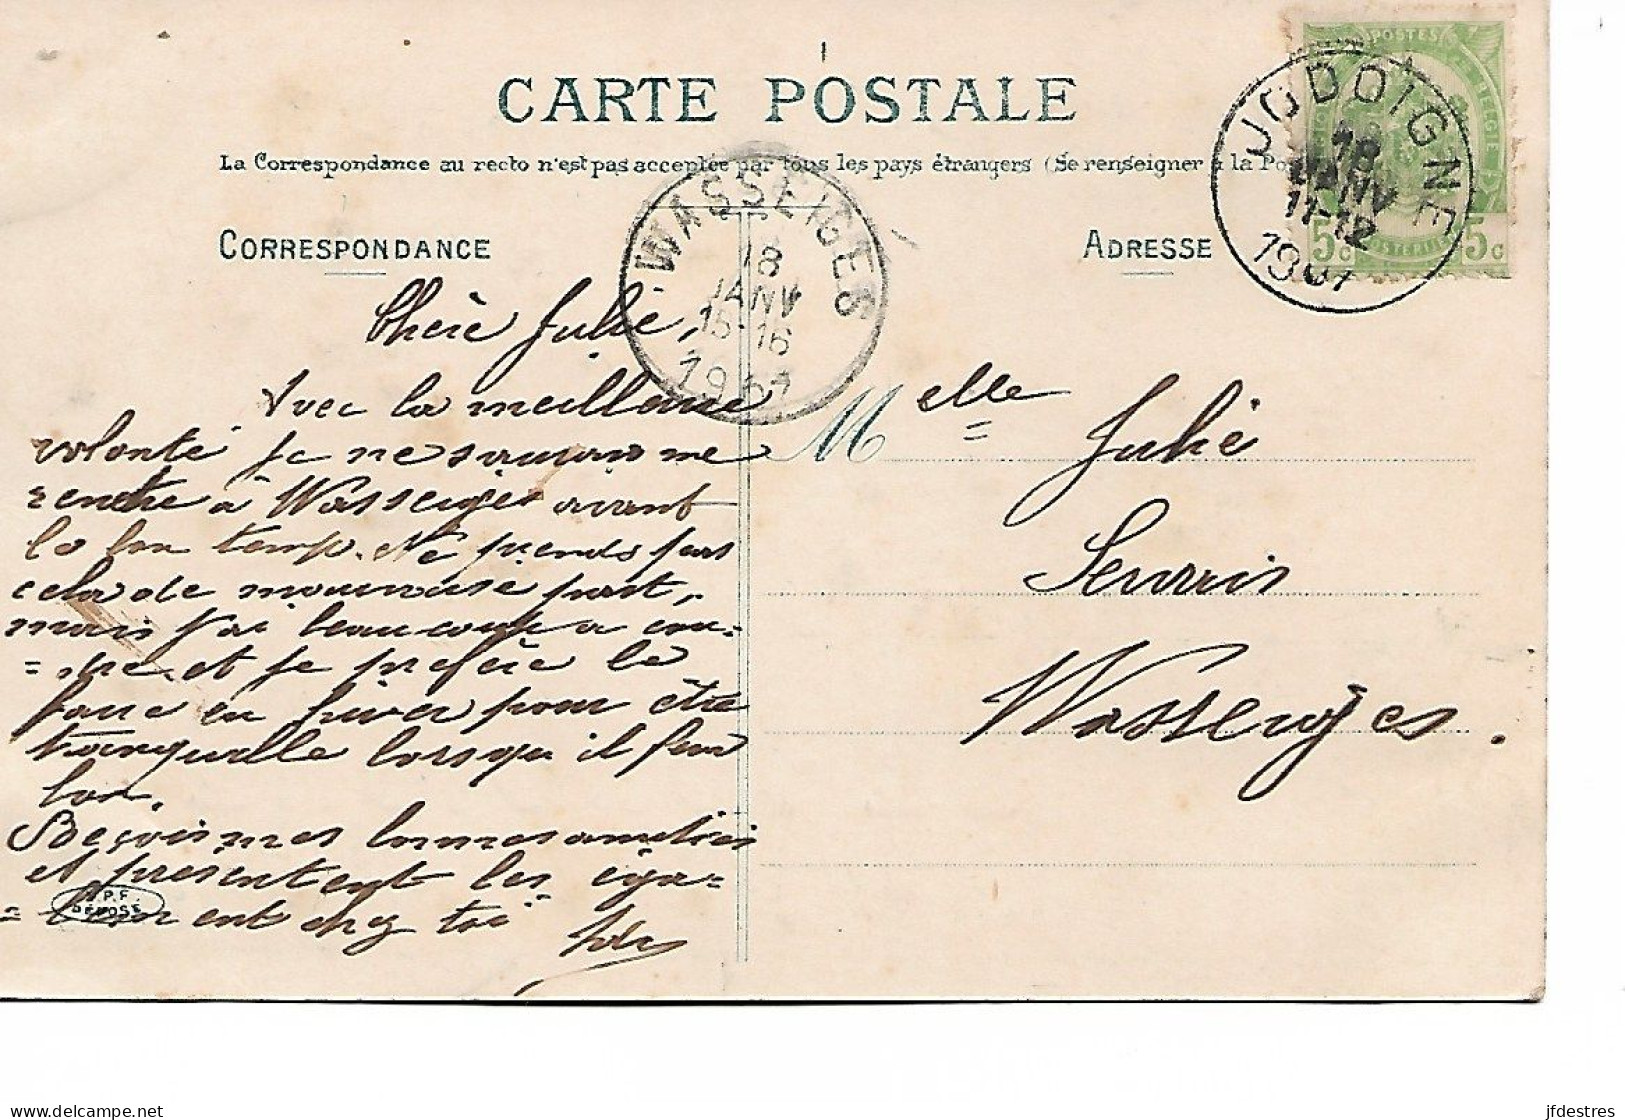 CARTE POSTALE
La Correspondance au recto n'est pas acceptée par tous les pays étrangers (Se renseigner à la Po
CORRESPONDANCE
ADRESSE
POSTES
BELGIE
5c
5c
JODOIGNE
18
JANV
11-12
1907
WASSEIGES
18
JANV
15-16
1907
Chère Julie,
Avec la meilleure
volonté je ne saurais me
rendre à Wasseiges avant
le bon temps. Ne prends pas
cela de mauvaise part,
mais j'ai beaucoup a cou=
=dre et je préfère le
faire en hiver pour être
tranquille lorsqu'il fera
bon.
Reçois mes bonnes amitiés
et présentent les éga=
=lement chez toi
Melle Julie
Servais
Wasseiges.
P.F.
DÉPOSÉ
delcampe.net
jfdestres